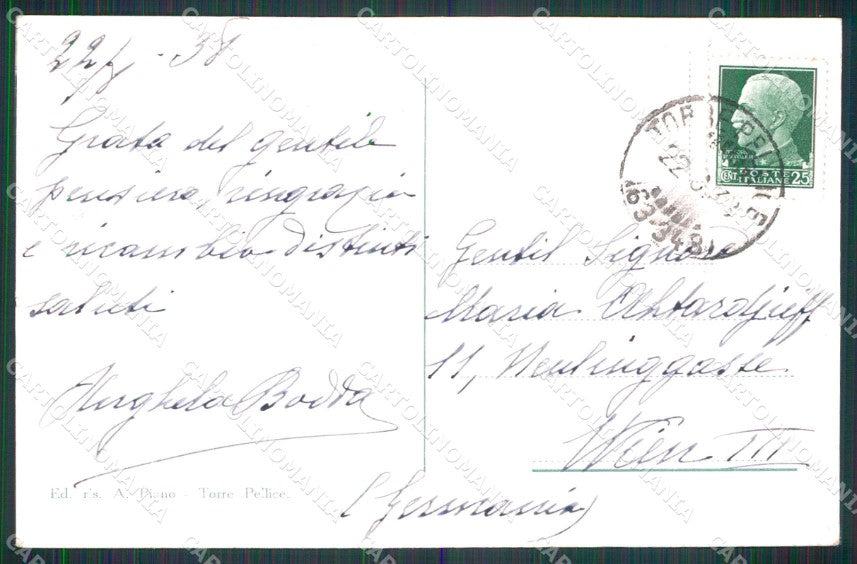 22/8 - 38
Grata del gentile
pensiero, ringrazio
e ricambio distinti
saluti
Bodda
Ed. ris. A. Piano - Torre Pellice.
POSTE
ITALIANE
CENT. 25
TORRE PELLICE
22
(63-348)
Gentil Signora
Maria Ahtardjieff
11, Neulinggasse
Wien III
(Germania)
CARTOLINOMANIA